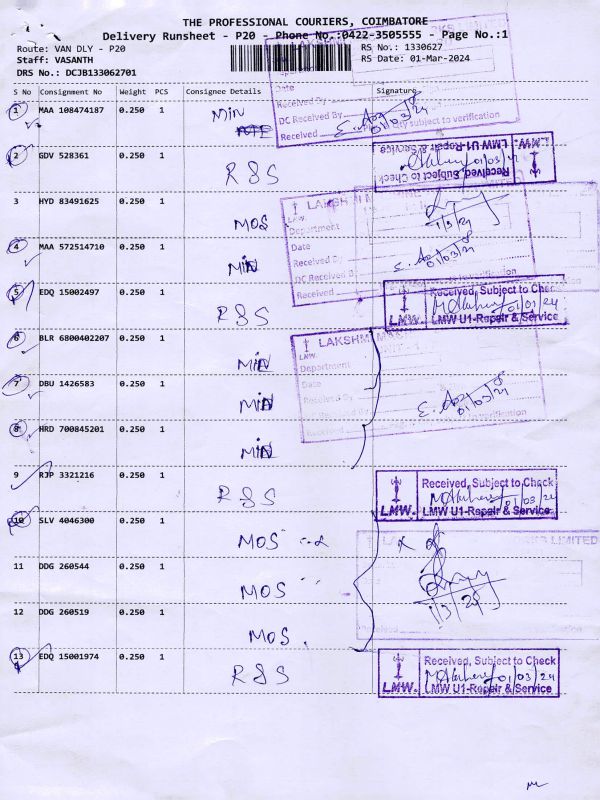 THE PROFESSIONAL COURIERS, COIMBATORE
Delivery Runsheet - P20 - Phone No.:0422-3505555 - Page No.:1
Route: VAN DLY - P20 RS No.: 1330627
Staff: VASANTH RS Date: 01-Mar-2024
DRS No.: DCJB133062701
S No Consignment No Weight PCS Consignee Details Signature
1 MAA 108474187 0.250 1 MIN
Date
Received By
DC Received By
Received subject to verification
01/03/24
2 GDV 528361 0.250 1 R&S
LMW. Received, Subject to Check
LMW U1-Repair & Service
01/03/24
3 HYD 83491625 0.250 1 MOS
LAKSHMI
LMW
Department
Date
DC Received By
Received
1/3/24
4 MAA 572514710 0.250 1 MIN
01/03/24
5 EDQ 15002497 0.250 1 R&S
LMW. Received, Subject to Check
01/03/24
LMW U1-Repair & Service
6 BLR 6800402207 0.250 1 MIN
LAKSHMI
LMW
Department
Date
7 DBU 1426583 0.250 1 MIN
01/03/24
8 HRD 700845201 0.250 1 MIN
9 RJP 3321216 0.250 1 R&S
LMW. Received, Subject to Check
01/03/24
LMW U1-Repair & Service
10 SLV 4046300 0.250 1 MOS
LIMITED
11 DDG 260544 0.250 1 MOS
1/3/24
12 DDG 260519 0.250 1 MOS.
13 EDQ 15001974 0.250 1 R&S
LMW. Received, Subject to Check
01/03/24
LMW U1-Repair & Service